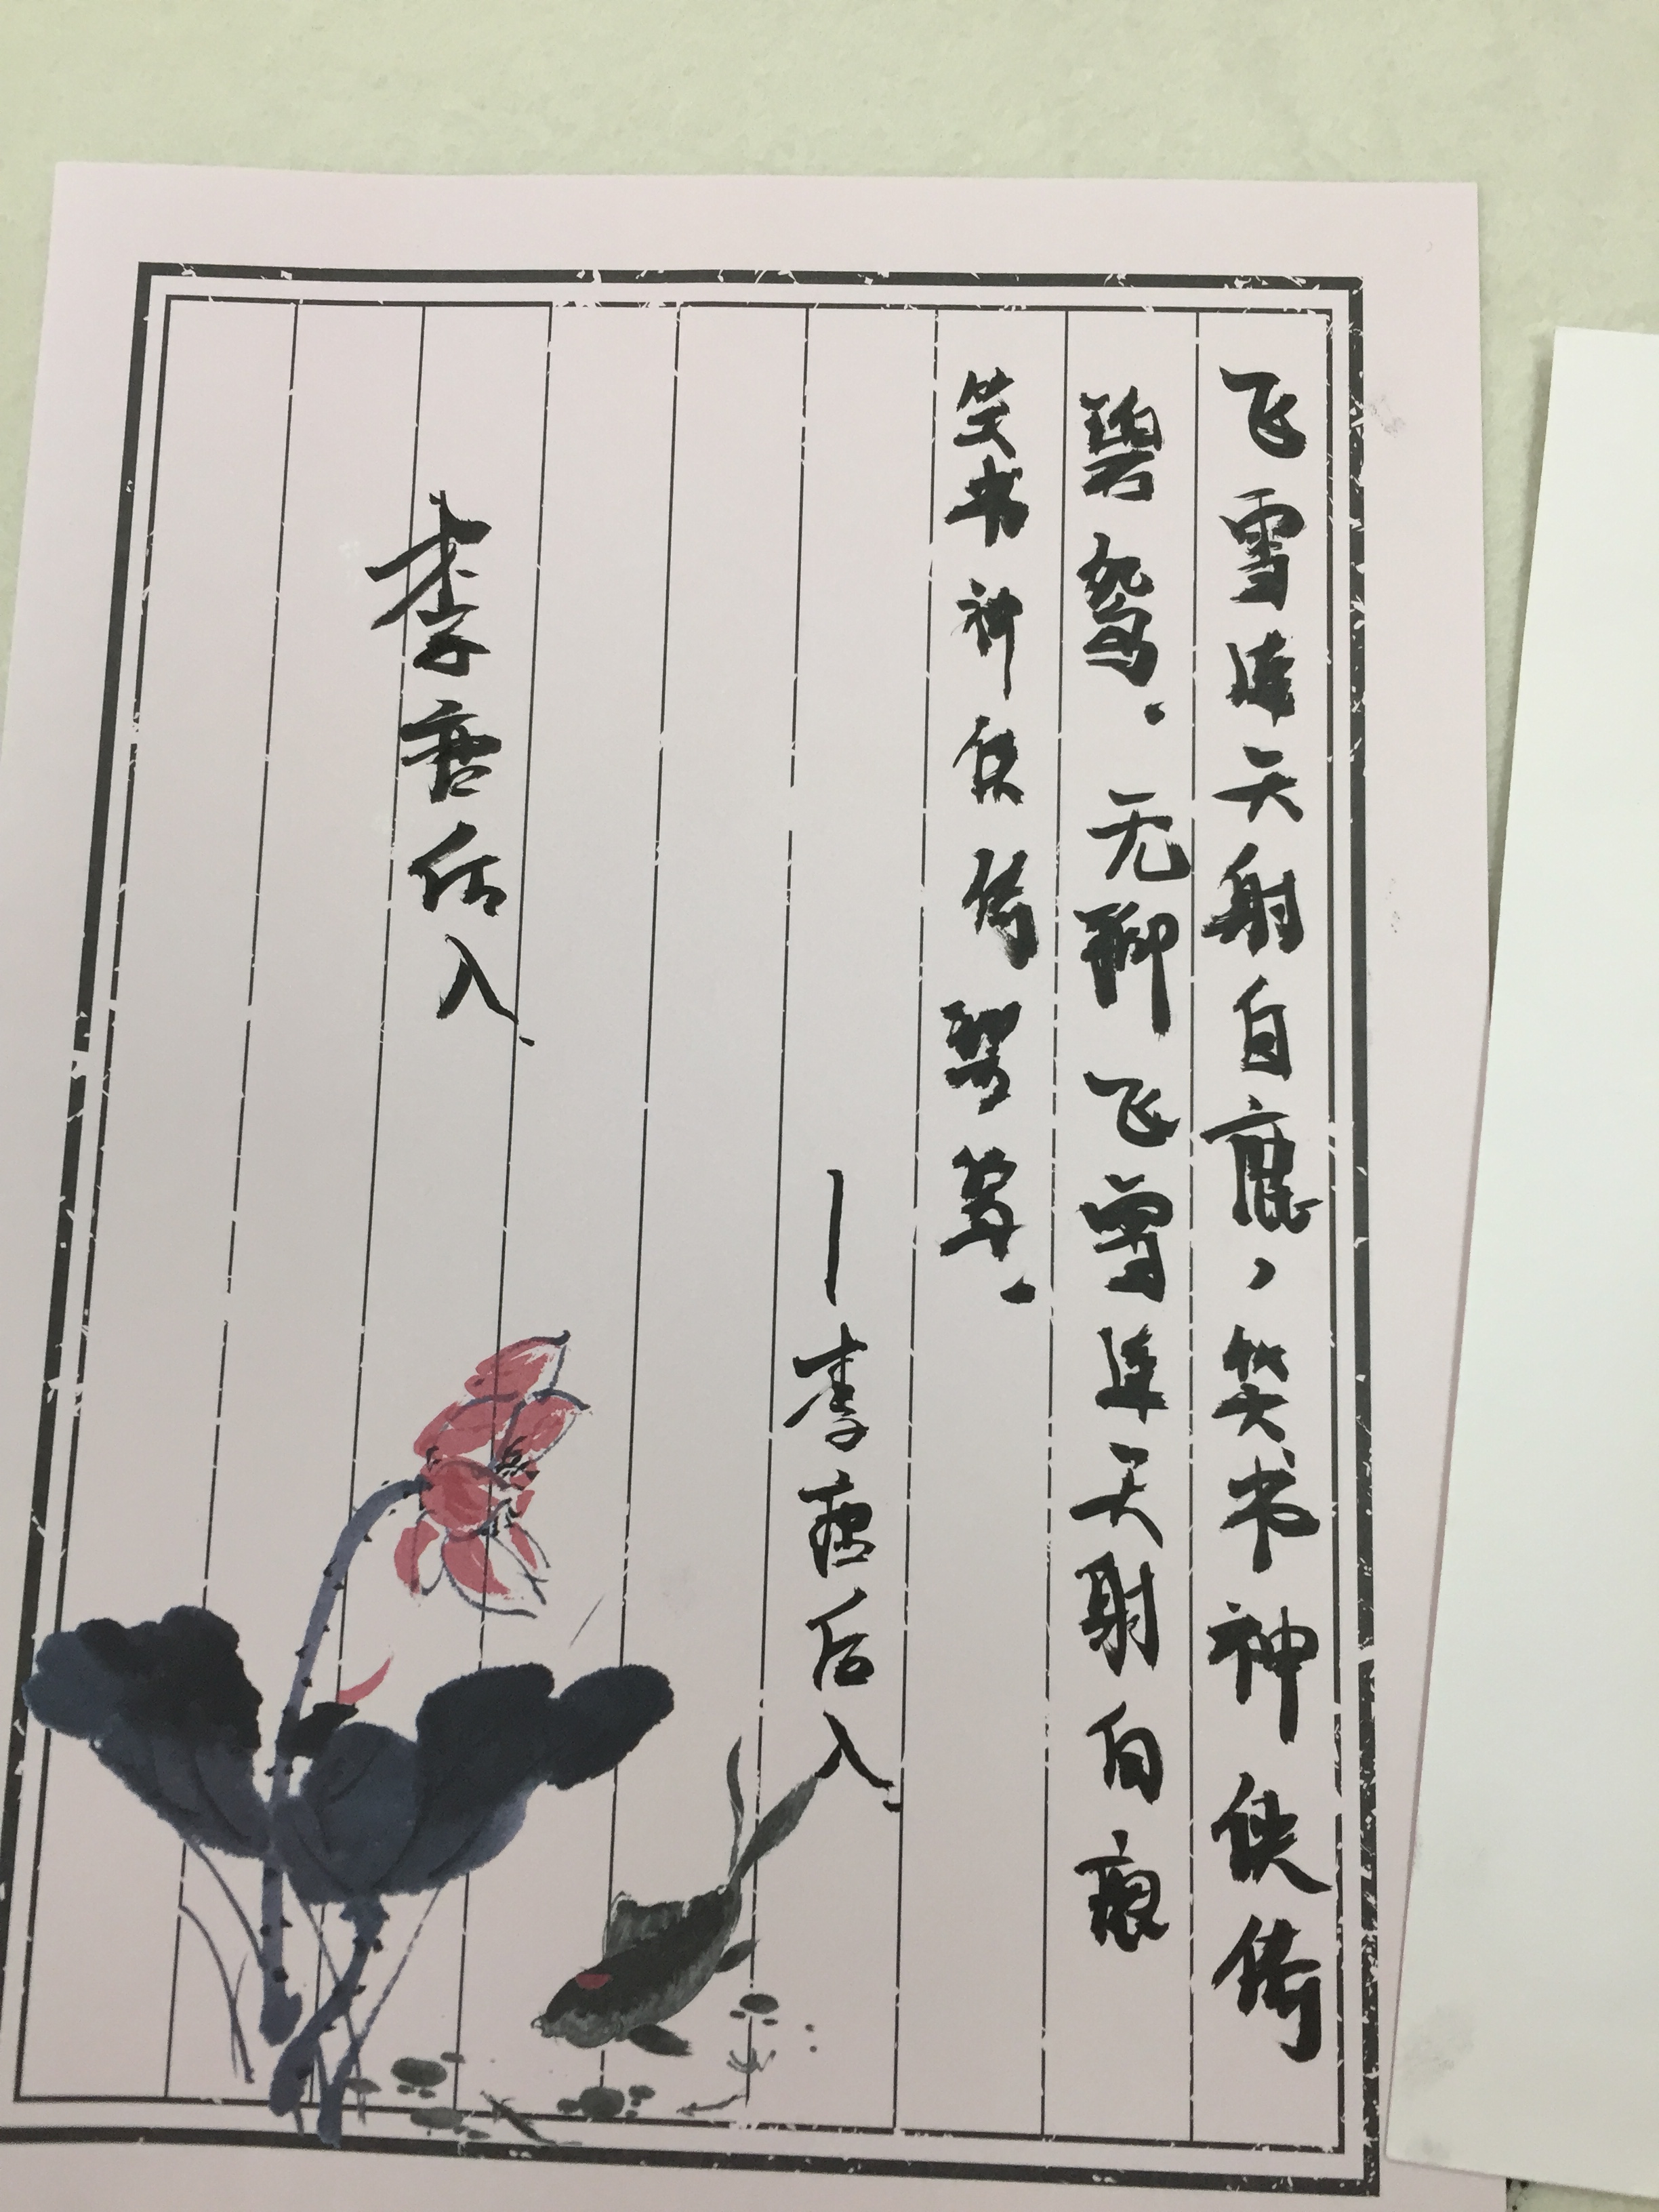 飞雪连天射白鹿，笑书神侠倚
碧鸳．无聊飞雪连天射白鹿
笑书神侠倚碧鸳．
—李唐后人
李唐后人